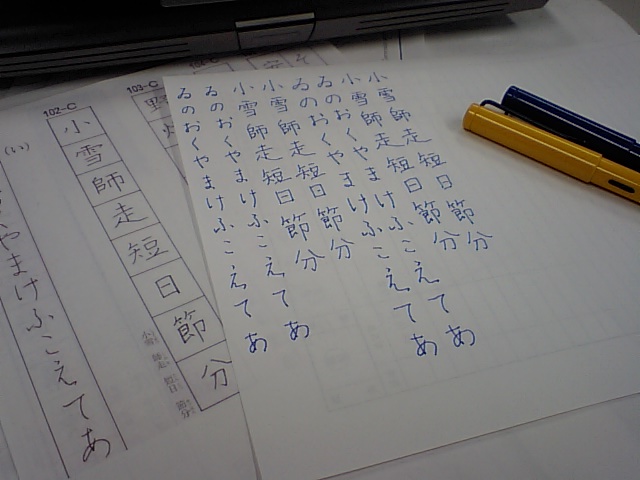 小雪師走短日節分
小雪師走短日節分
ゐのおくやまけふこえてあ
ゐのおくやまけふこえてあ
小雪師走短日節分
小雪師走短日節分
ゐのおくやまけふこえてあ
ゐのおくやまけふこえてあ
103-C
野
102-C
小雪師走短日節分
やまけふこえてあ